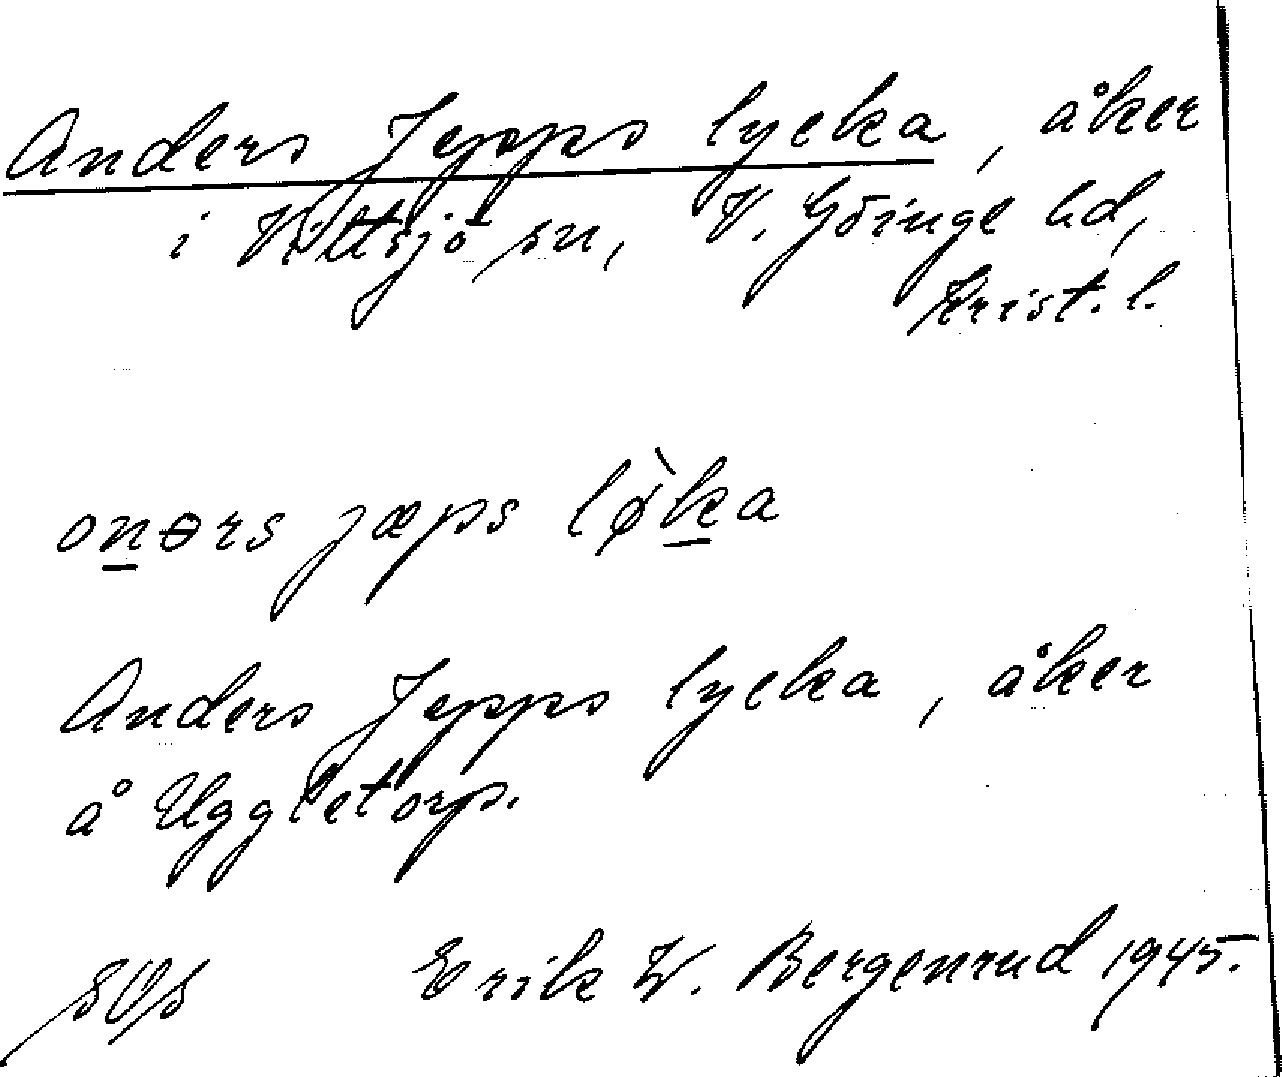 Anders Jepps lycka, åker
i Vittsjö sn, V. Göinge hd,
Krist. l.
onərs jæps lø̀ka
Anders Jepps lycka, åker
å Uggletorp.
Erik W. Bergenrud 1945.